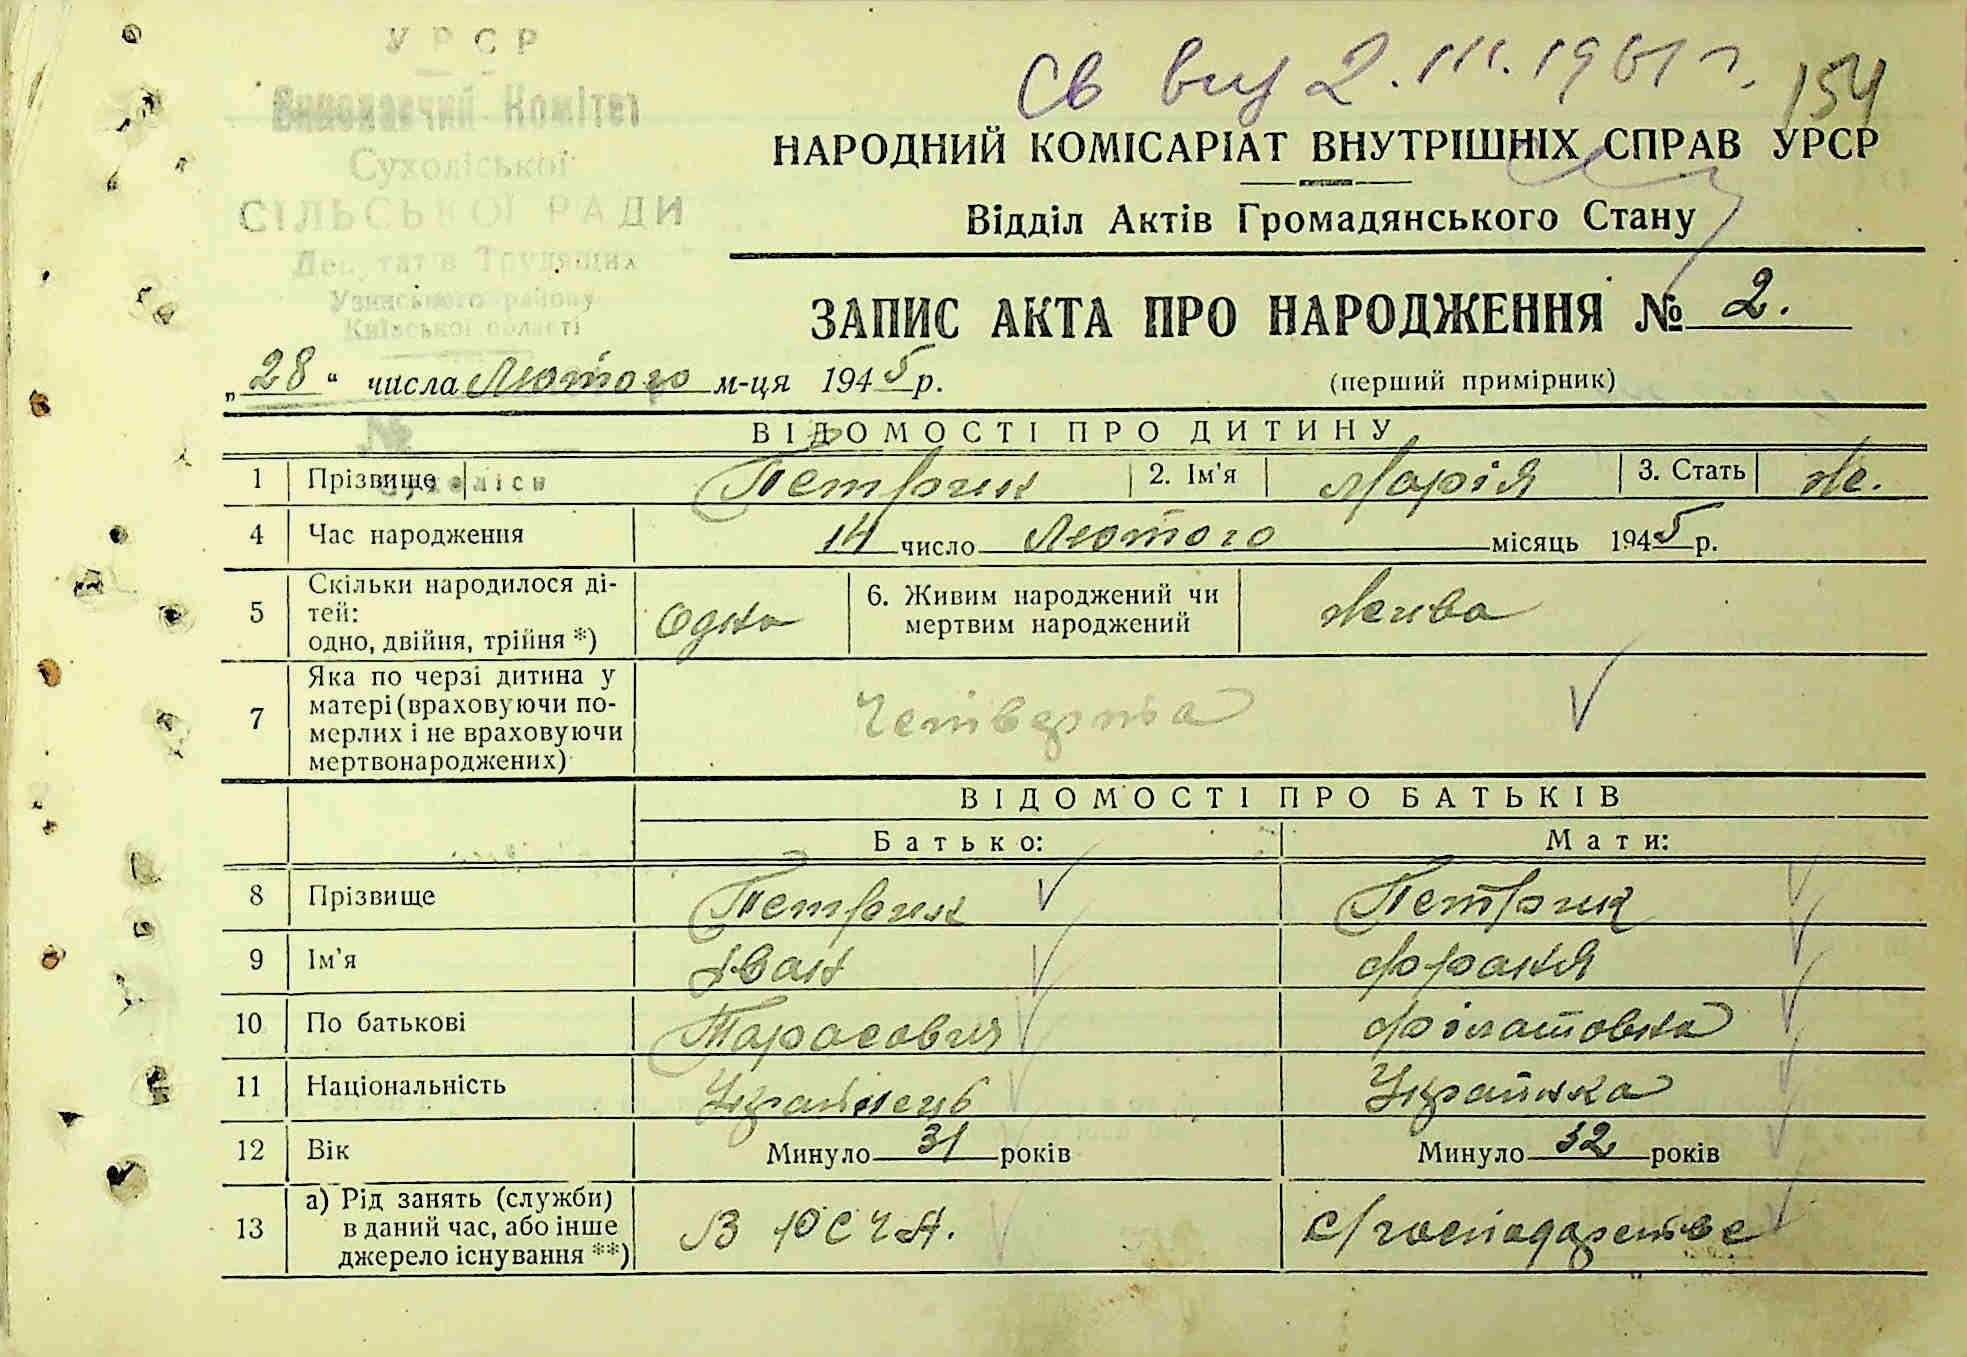 УРСР
Виконавчий Комітет
Сухоліської
СІЛЬСЬКОЇ РАДИ
Депутатів Трудящих
Узинського району
Київської області
№
Св вид 2.III.1961 г.
154
НАРОДНИЙ КОМІСАРІАТ ВНУТРІШНІХ СПРАВ УРСР
Відділ Актів Громадянського Стану
ЗАПИС АКТА ПРО НАРОДЖЕННЯ № 2.
„28“ числа Лютого м-ця 1945 р. (перший примірник)
ВІДОМОСТІ ПРО ДИТИНУ
1 Прізвище Петрик 2. Ім'я Марія 3. Стать Же.
4 Час народження 14 число Лютого місяць 1945 р.
5 Скільки народилося ді-
тей:
одно, двійня, трійня *) Одна 6. Живим народжений чи
мертвим народжений Жива
7 Яка по черзі дитина у
матері (враховуючи по-
мерлих і не враховуючи
мертвонароджених) Четверта
ВІДОМОСТІ ПРО БАТЬКІВ
Батько: Мати:
8 Прізвище Петрик Петрик
9 Ім'я Іван Франя
10 По батькові Тарасович Філатовна
11 Національність Українець Українка
12 Вік Минуло 31 років Минуло 32 років
13 а) Рід занять (служби)
в даний час, або інше
джерело існування **) В РСЧА. с/господарстве